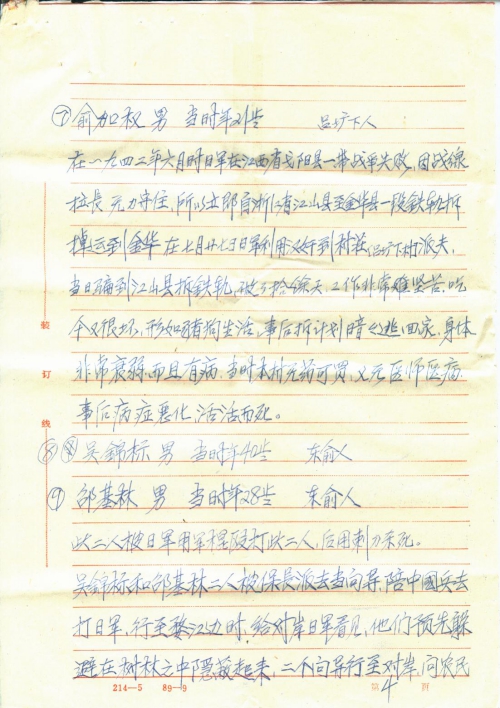 ⑦俞加权 男 当时年21岁 吕圹下人
在一九四二年六月时日军在江西省戈阳县一带战争失败,因战缐
拉長无力守住,所以立即自浙江省江山县至金华县一段鉄軌拆
掉运到金华在七月廿七号日军利用汉奸到村莊吕圹下村派夫,
当日骗到江山县拆鉄軌,做了拾馀天,工作非常难坚苦,吃
又很坏,形如猪狗生活,事后拆计划暗々逃回家,身体
非常衰弱而且有病,当时本村无药可買,又无医师医病
事后病症悪化,活活而死。
⑧吴錦标 男 当时年40岁 东俞人
⑨邵基林 男 当时年28岁 东俞人
此二人被日军用军棍殴打此二人,后用刺刀杀死。
吴錦标和邵基林二人被保長派去当向导,陪中國兵去
打日军,行至婺江边时,给对岸日軍看见,他们预先躲
避在树林之中隐蔽起来,二个向导行至对岸,向农民
装
订
线
214—5 89—9
第4页